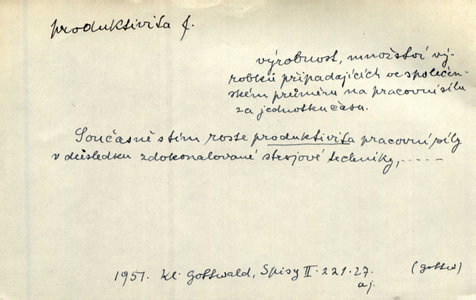 produktivita f.
výrobnost, množství vý-
robků připadajících ve společen-
ském průměru na pracovní sílu
za jednotku času.
Současně s tím roste produktivita pracovní síly
v důsledku zdokonalované strojové techniky, .....
1951. Kl. Gottwald, Spisy II. 221.27. (gottw)
aj.